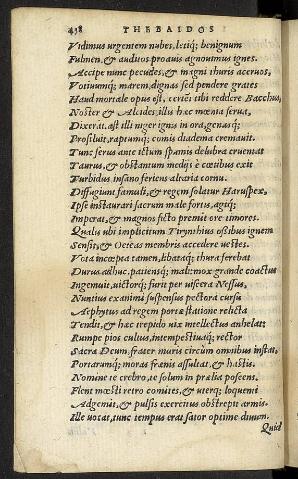 438 THEBAIDOS
Vidimus urgentem nubes, letiq; benignum
Fulmen, & auditos proauis agnouimus ignes.
Accipe nunc pecudes, & magni thuris aceruos,
Votiuumq; marem, dignas sed pendere grates
Haud mortale opus est, certēt tibi reddere Bacchus,
Noster & Alcides, illis hæc mœnia serua,
Dixerat. ast illi niger ignis in ora, genasq;
Prosiluit, raptumq; comis diadema cremauit.
Tunc serus ante ictum spumis delubra cruentat
Taurus, & obstantum medijs è cœtibus exit
Turbidus insano feriens altaria cornu.
Diffugiunt famuli, & regem solatur Haruspex,
Ipse instaurari sacrum male fortis, agiq;
Imperat, & magnos ficto premit ore timores.
Qualis ubi implicitum Tirynthius ossibus ignem
Sensit, & Oeteas membris accedere uestes.
Vota incœpta tamen, libataq; thura ferebat
Durus adhuc, patiensq; mali: mox grande coactus
Ingemuit, uictorq; furit per uiscera Nessus,
Nuntius exanimi suspensus pectora cursu
Aephytus ad regem portæ statione relicta
Tendit, & hæc trepido uix intellectus anhelat;
Rumpe pios cultus, intempestiuaq; rector
Sacra Deum, frater muris circum omnibus instat,
Portarumq; moras frænis assultat, & hastis.
Nomine te crebro, te solum in prælia poscens.
Flent mœsti retro comites, & uterq; loquenti
Adgemit, & pulsis exercitus obstrepit armis.
Ille uocat, nunc tempus erat sator optime diuum.
Quid